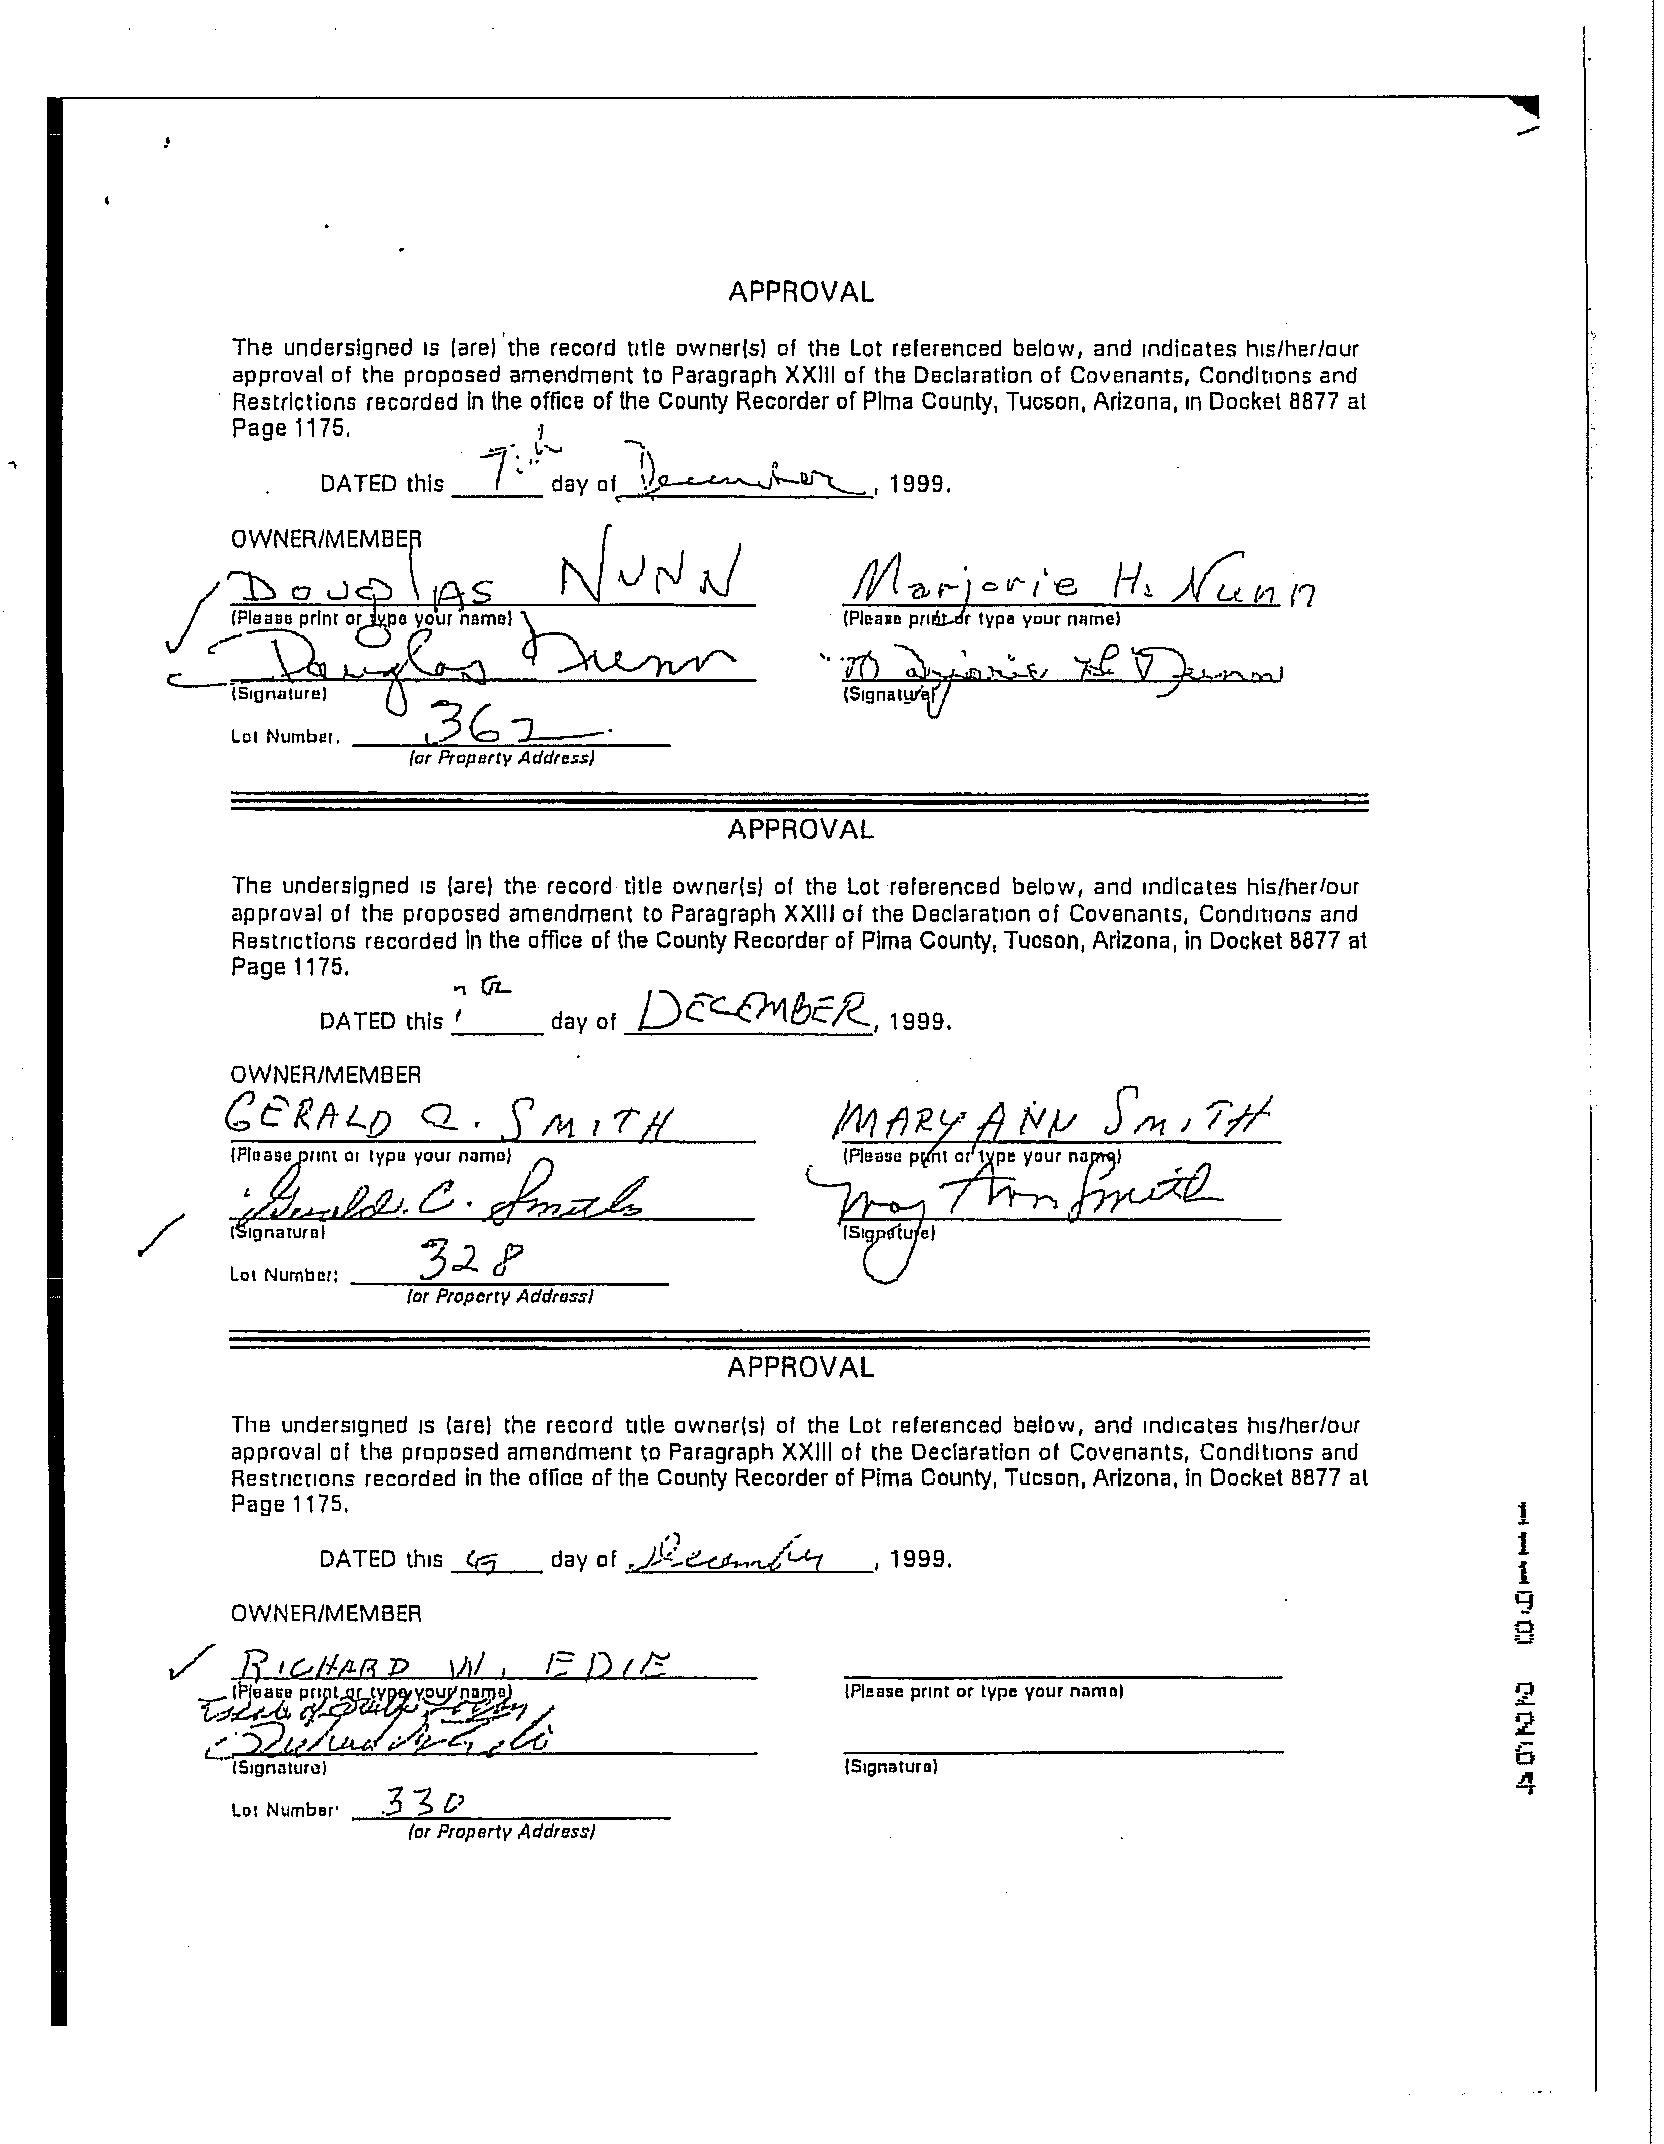 APPROVAL
The undersigned is (are) the record title owner(s) of the Lot referenced below, and indicates his/her/our
approval of the proposed amendment to Paragraph XXIII of the Declaration of Covenants, Conditions and
Restrictions recorded in the office of the County Recorder of Pima County, Tucson, Arizona, in Docket 8877 at
Page 1175.
DATED this 7th day of December, 1999.
OWNER/MEMBER
DOUglAS NUNN Marjorie H. Nunn
(Please print or type your name) (Please print or type your name)
Douglas Nunn Marjorie H Nunn
(Signature) (Signature)
Lot Number. 362
(or Property Address)
APPROVAL
The undersigned is (are) the record title owner(s) of the Lot referenced below, and indicates his/her/our
approval of the proposed amendment to Paragraph XXIII of the Declaration of Covenants, Conditions and
Restrictions recorded in the office of the County Recorder of Pima County, Tucson, Arizona, in Docket 8877 at
Page 1175.
DATED this day of DECEMBER, 1999.
OWNER/MEMBER
GERALD C. SMITH MARY ANN SMITH
(Please print or type your name) (Please print or type your name)
Gerald C. Smith Mary Ann Smith
(Signature) (Signature)
Lot Number: 328
(or Property Address)
APPROVAL
The undersigned is (are) the record title owner(s) of the Lot referenced below, and indicates his/her/our
approval of the proposed amendment to Paragraph XXIII of the Declaration of Covenants, Conditions and
Restrictions recorded in the office of the County Recorder of Pima County, Tucson, Arizona, in Docket 8877 at
Page 1175.
DATED this day of December, 1999.
OWNER/MEMBER
RICHARD W. EDIE
(Please print or type your name) (Please print or type your name)
Richard W. Edie
(Signature) (Signature)
Lot Number: 330
(or Property Address)